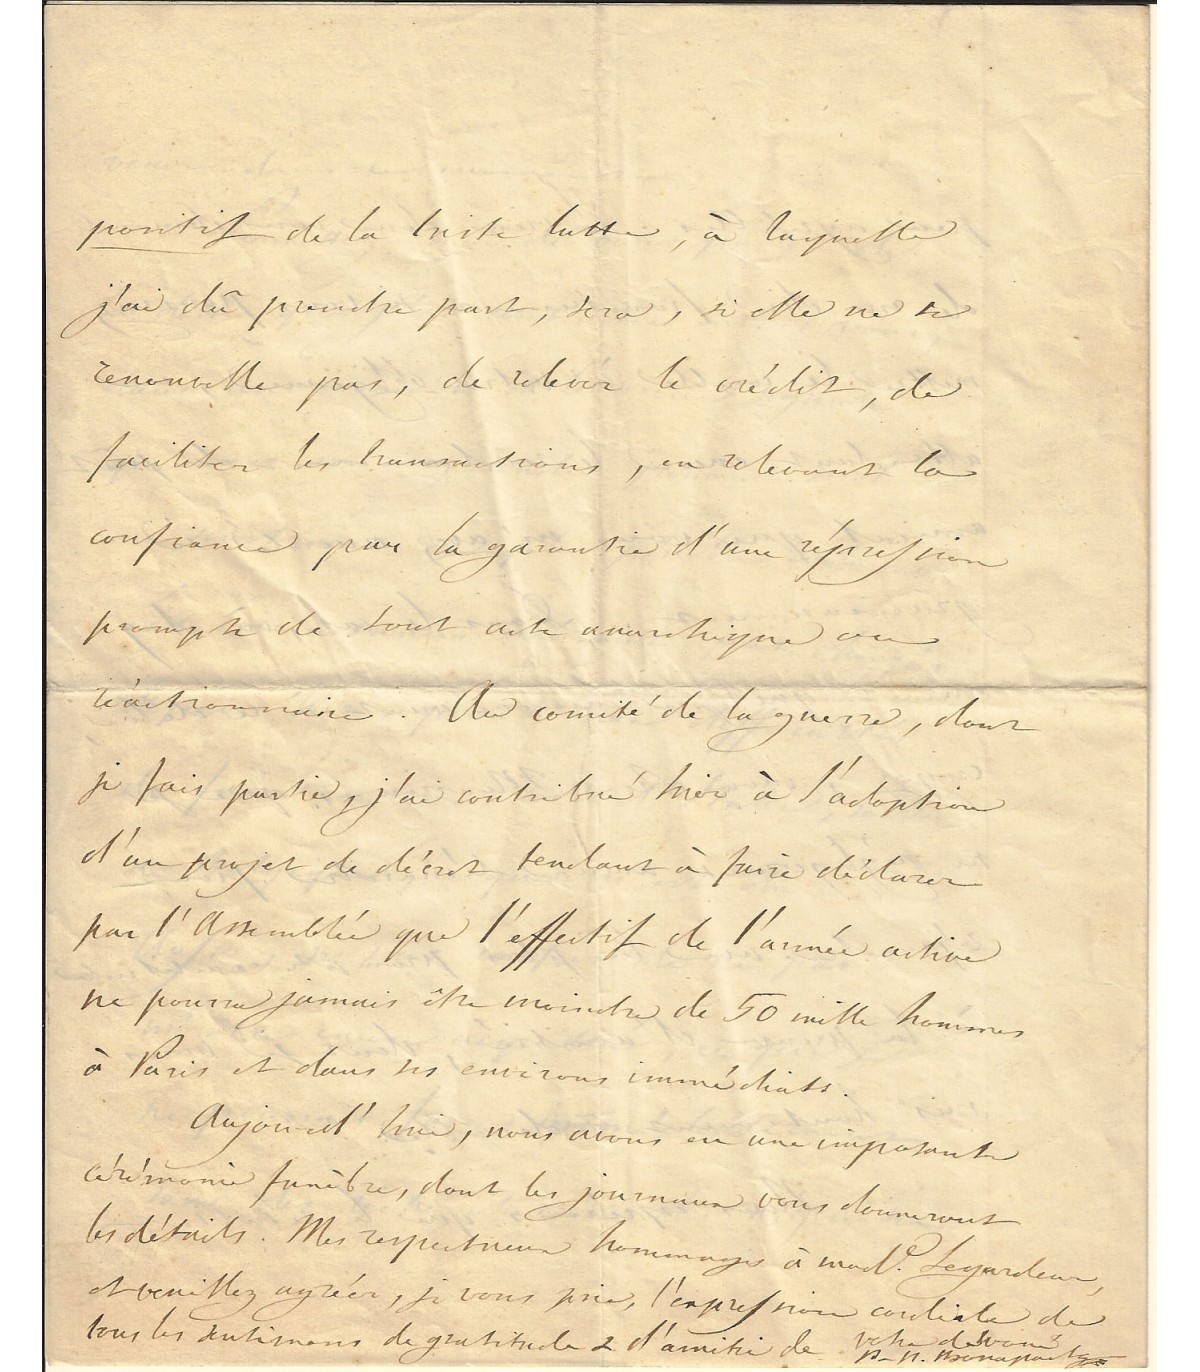 positif de la triste lutte, à laquelle
j'ai dû prendre part, sera, si elle ne se
renouvelle pas, de relever le crédit, de
faciliter les transactions, en relevant la
confiance par la garantie d'une répression
prompte de tout acte anarchique ou
réactionnaire. Au comité de la guerre, dont
je fais partie, j'ai contribué hier à l'adoption
d'un projet de décret tendant à faire déclarer
par l'Assemblée que l'effectif de l'armée active
ne pourra jamais être moindre de 50 mille hommes
à Paris et dans ses environs immédiats.
Aujourd'hui, nous avons eu une imposante
cérémonie funèbre, dont les journaux vous donneront
les détails. Mes respectueux hommages à mad.e Legardeur,
et veuillez agréer, je vous prie, l'expression cordiale de
tous les sentimens de gratitude & d'amitié de votre dévoué
P.-N. Bonaparte